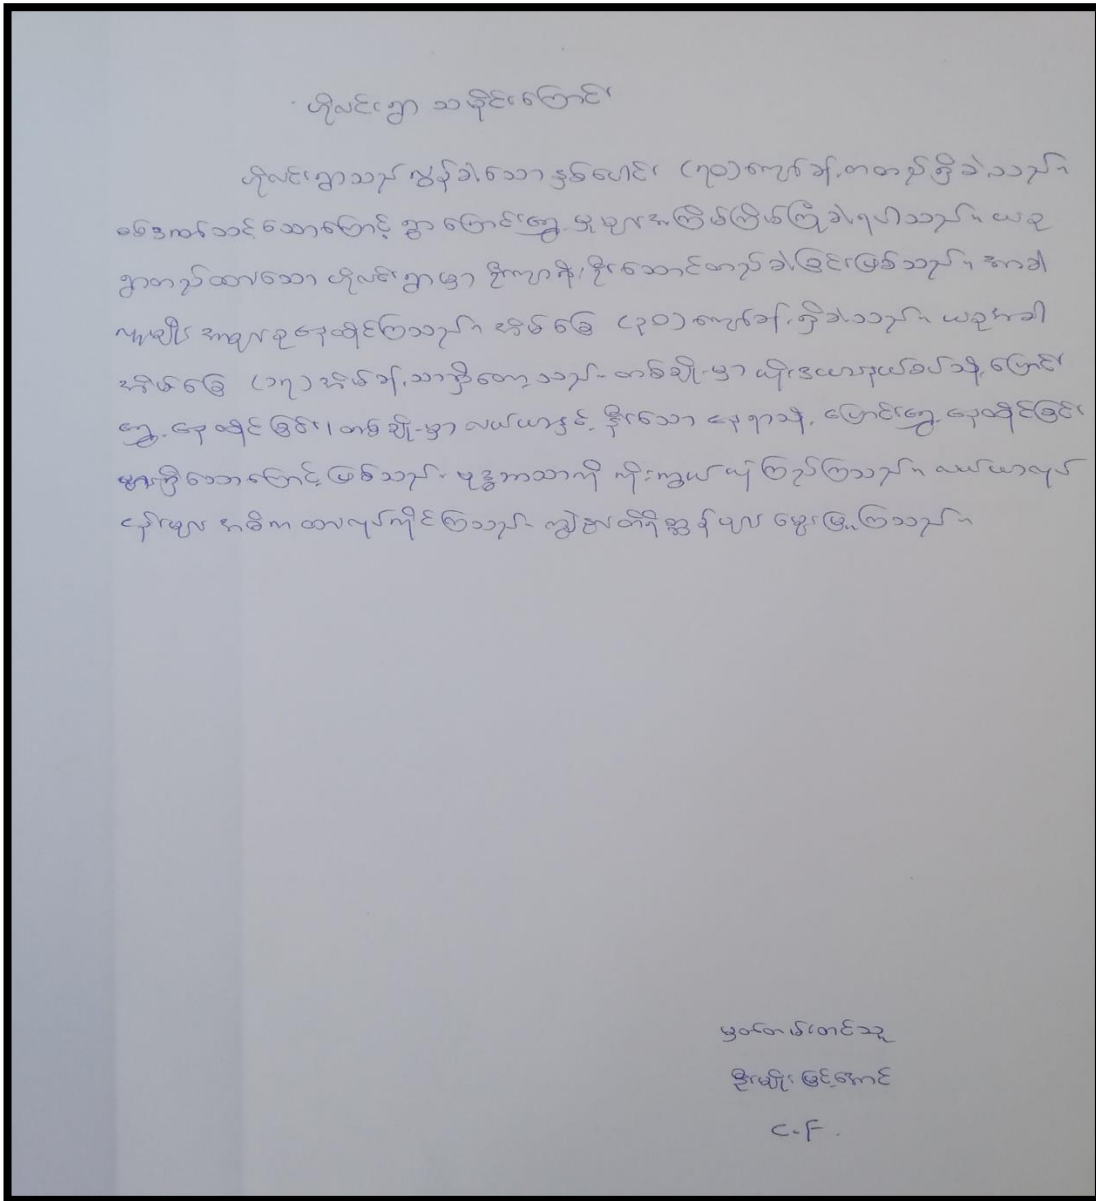 ဟိုလင်းရွာ သမိုင်းကြောင်း
ဟိုလင်းရွာသည် လွန်ခဲ့သော နှစ်ပေါင်း (၇၀) ကျော်ခန့် တည်ရှိခဲ့သည်။
စစ်ဒဏ်သင့်သောကြောင့် ရွာ ပြောင်းရွှေ့မှုများ အကြိမ်ကြိမ်ကြုံခဲ့ရပါသည်။ ယခု
ရွာတည်ထားသော ဟိုလင်းရွာမှာ ဦးကျာနီး ဦးဆောင်တည်ခဲ့ခြင်းဖြစ်သည်။
လူမျိုး အများစုနေထိုင်ကြသည်။ အိမ်ခြေ (၃၀) ကျော်ခန့် ရှိခဲ့သည်။ ယခုအခါ
အိမ်ခြေ (၁၇) အိမ်ခန့်သာရှိတော့သည်။ တစ်ချို့မှာ ထိုင်းနယ်စပ်သို့ ပြောင်း
ရွှေ့နေထိုင်ခြင်း၊ တစ်ချို့မှာ လယ်ယာနှင့် နီးသော နေရာသို့ ပြောင်းရွှေ့နေထိုင်ခြင်း
များရှိသောကြောင့် ဖြစ်သည်။ ဗုဒ္ဓဘာသာကို ကိုးကွယ်ယုံကြည်ကြသည်။ လယ်ယာလုပ်
ငန်းများ အဓိကထားလုပ်ကိုင်ကြသည်။ ကျွဲနွားတိရိစ္ဆာန်များ မွေးမြူကြသည်။
မှတ်တမ်းတင်သူ
ဦးမျိုးမြင့်အောင်
C.F.